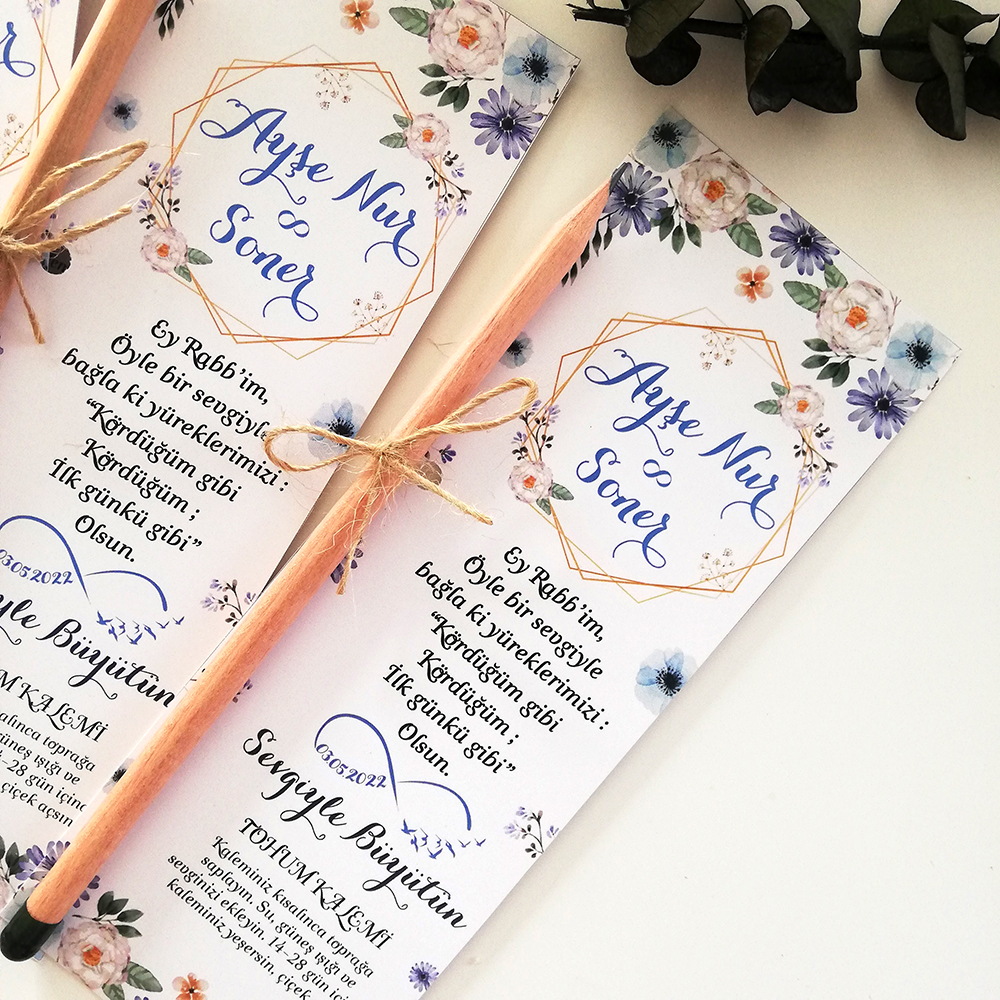 Ayşe Nur
∞
Soner
Ey Rabb'im,
Öyle bir sevgiyle
bağla ki yüreklerimizi :
“Kördüğüm gibi
Kördüğüm ;
İlk günkü gibi”
Olsun.
03.05.2022
Sevgiyle Büyütün
TOHUM KALEMİ
Kaleminiz kısalınca toprağa
saplayın. Su, güneş ışığı ve
sevginizi ekleyin. 14-28 gün
kaleminiz yeşersin, çiçek
Ayşe Nur
∞
Soner
Ey Rabb'im,
Öyle bir sevgiyle
bağla ki yüreklerimizi :
“Kördüğüm gibi
Kördüğüm ;
İlk günkü gibi”
Olsun.
03.05.2022
yle Büyütün
M KALEMİ
salınca toprağa
güneş ışığı ve
4-28 gün içinde
çiçek açsın